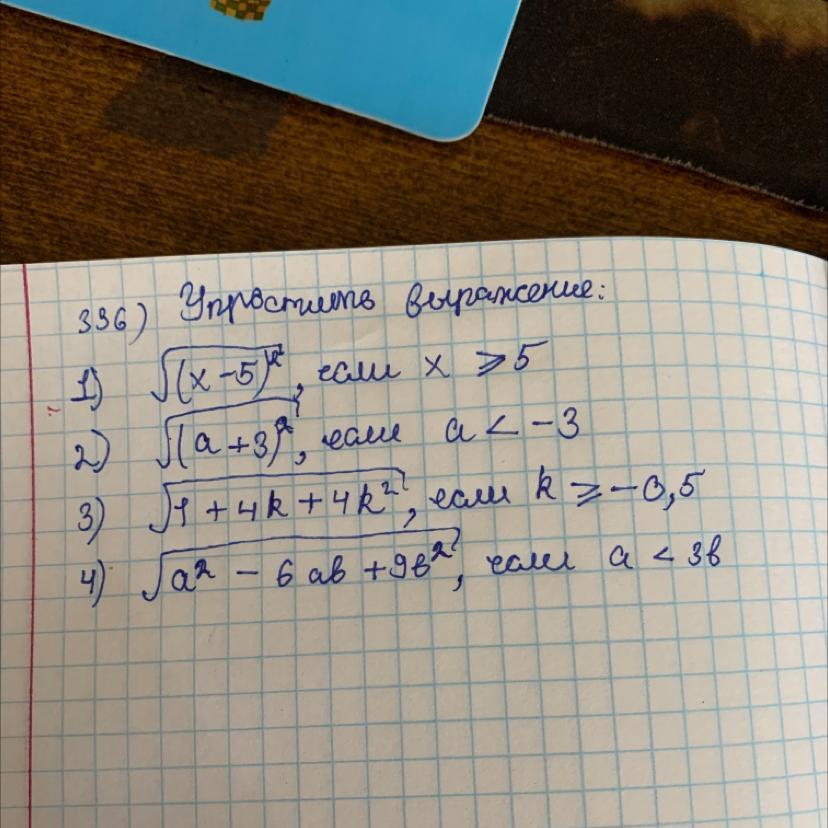 336) Упростить выражение:
1) √(x-5)², если x ⩾ 5
2) √(a+3)², если a < -3
3) √1+4k+4k², если k ⩾ -0,5
4) √a² - 6ab + 9b², если a < 3b